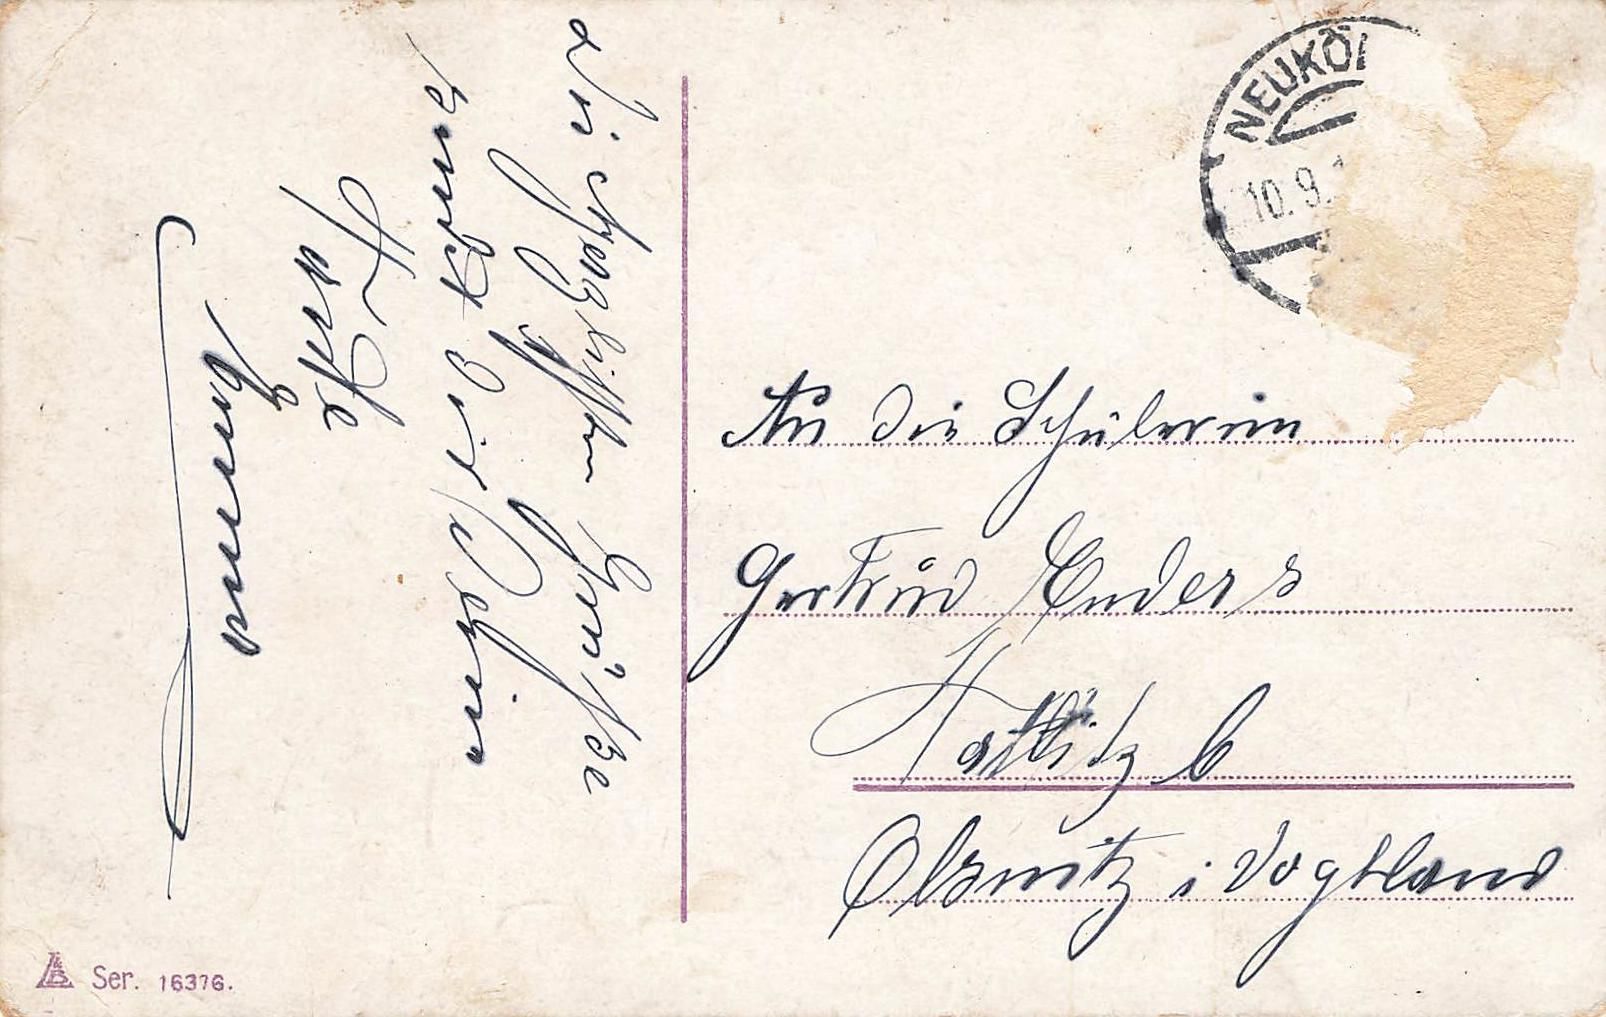 Die herzlichsten Grüsse
sendet dir deine
Tante
Emma
NEUKÖ
10.9.1
An die Schülerin
Gertrud Enders
b
Olsnitz i Vogtland
L&B
Ser. 16376.